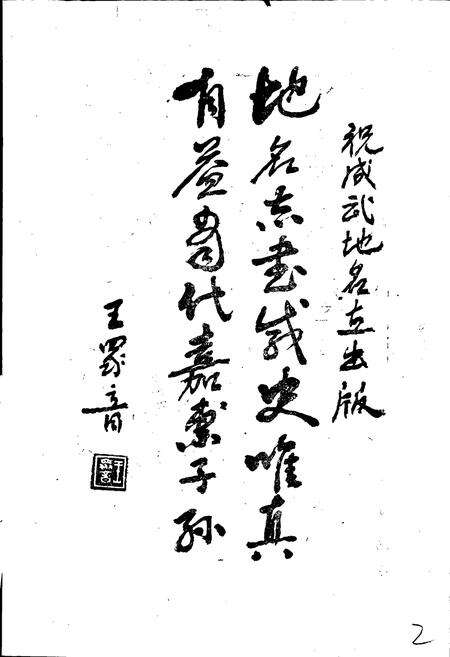 祝成武地名志出版
地名志书载史唯真
有益当代嘉惠子孙
王眾音
2